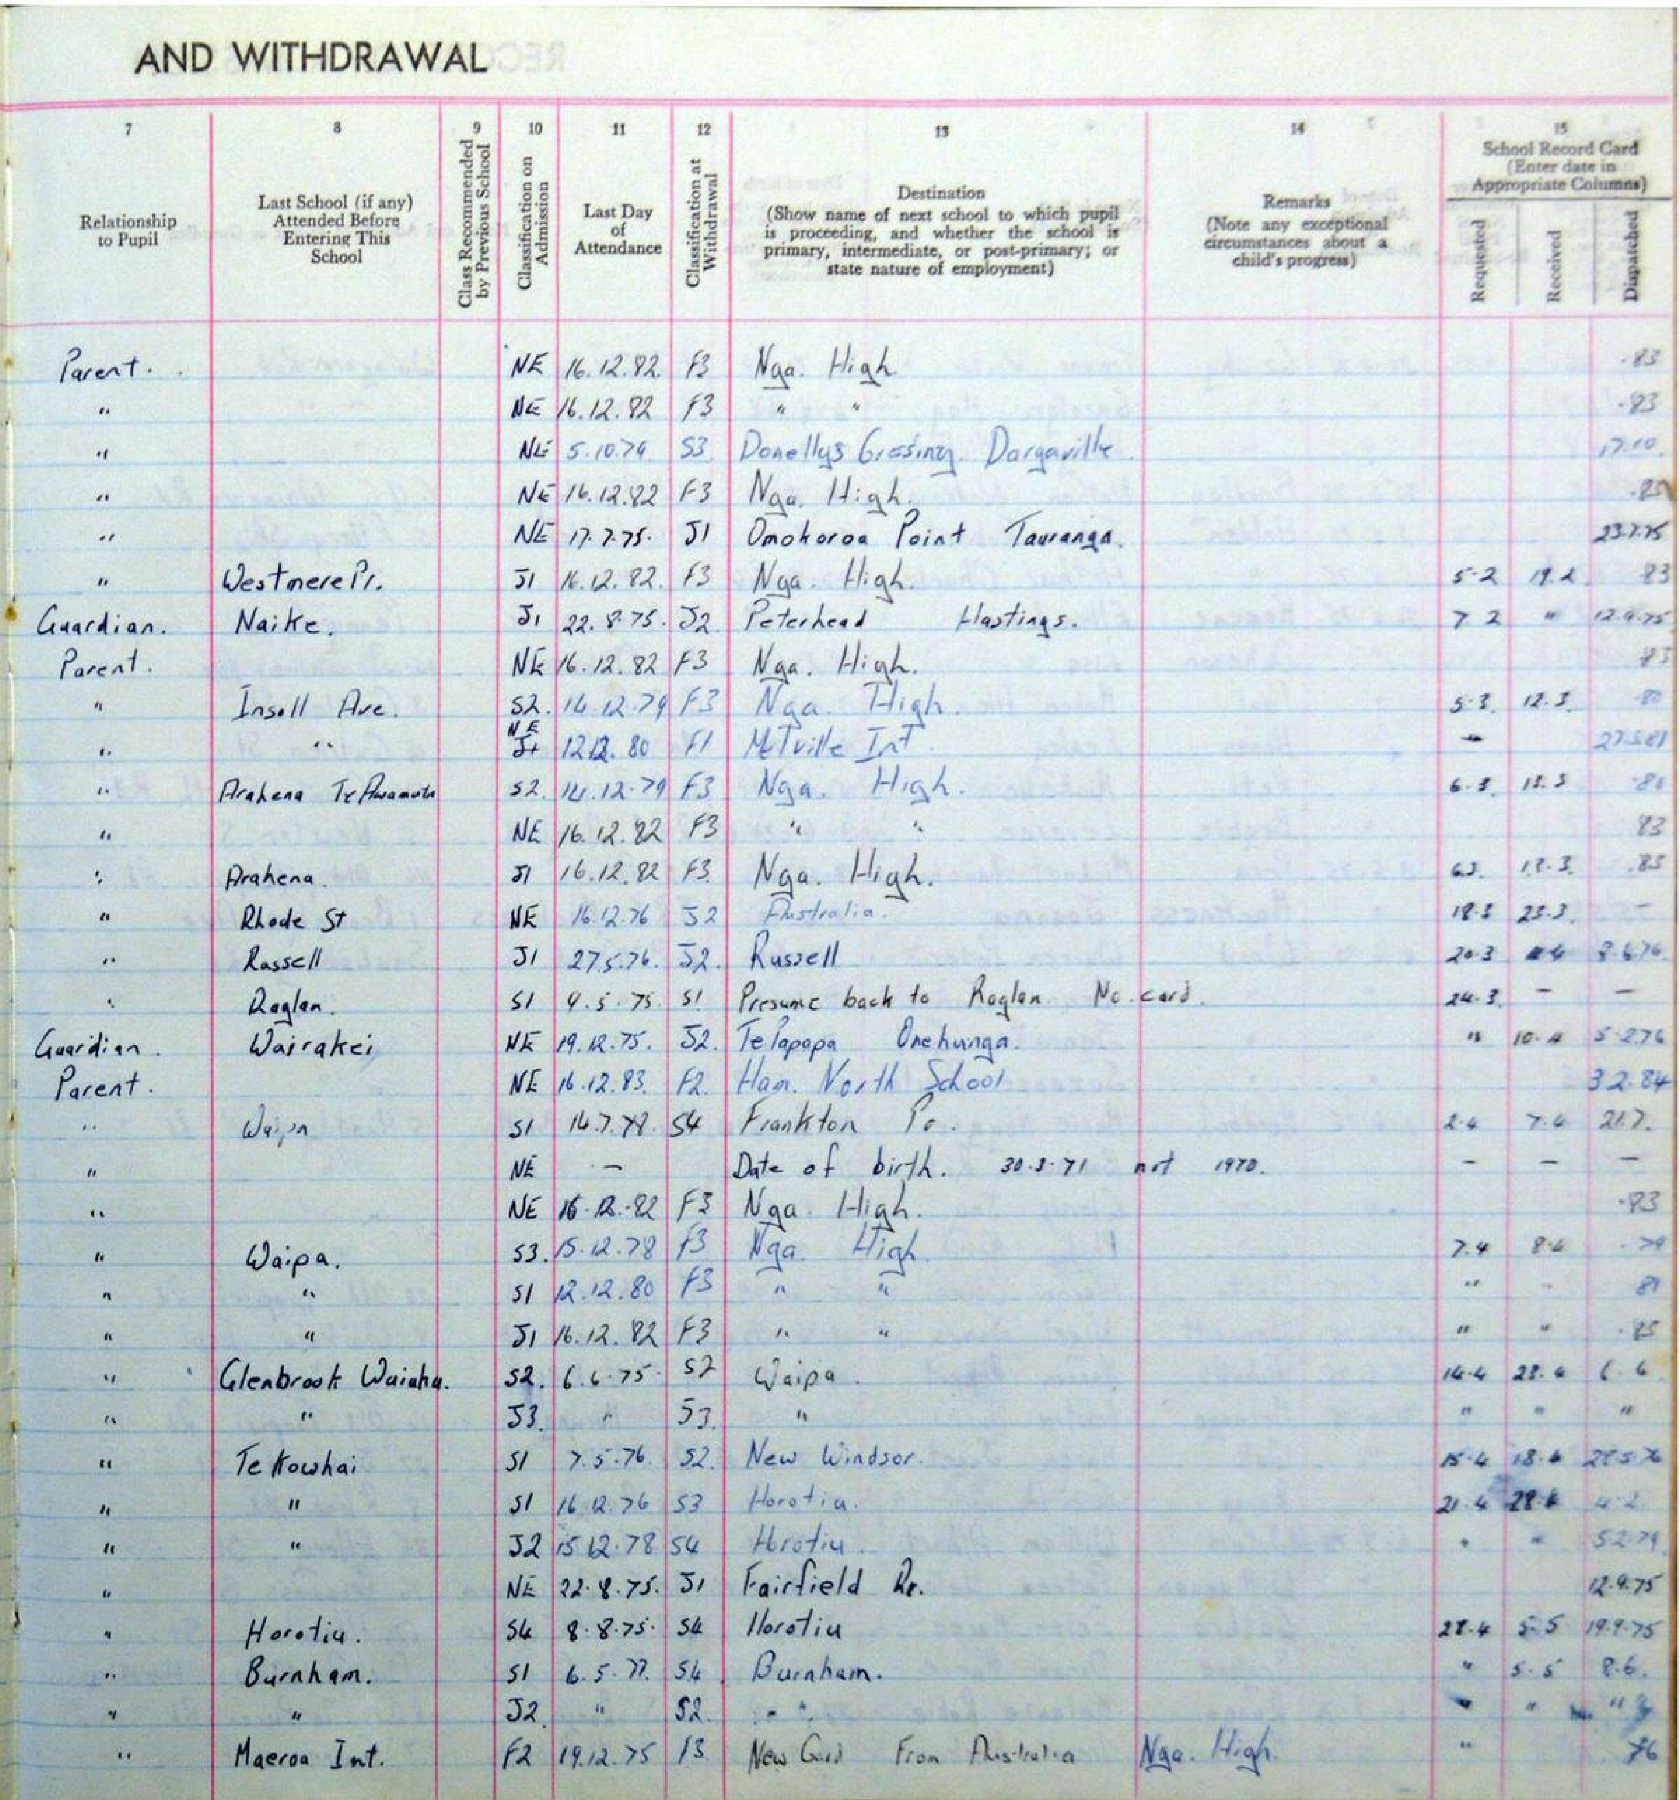 AND WITHDRAWAL
7 8 9 10 11 12 13 14 15
Relationship to Pupil
Last School (if any) Attended Before Entering This School
Class Recommended by Previous School
Classification on Admission
Last Day of Attendance
Classification at Withdrawal
Destination (Show name of next school to which pupil is proceeding, and whether the school is primary, intermediate, or post-primary; or state nature of employment)
Remarks (Note any exceptional circumstances about a child's progress)
School Record Card (Enter date in Appropriate Columns)
Requested Received Dispatched
Parent. NE 16.12.82 F3 Nga. High .83
" NE 16.12.82 F3 " " .83
" NE 5.10.74 S3 Donellys Crossing. Dargaville. 17.10.
" NE 16.12.82 F3 Nga. High.
" NE 17.7.75. J1 Omokoroa Point Tauranga. 23.7.75
" Westmere Pr. J1 16.12.82. F3 Nga. High. 5.2 19.2 83
Guardian. Naike. J1 22.8.75. J2 Peterhead Hastings. 7 2 " 12.9.75
Parent. NE 16.12.82 F3 Nga. High. 83
" Insoll Ave. S2. 14.12.79 F3 Nga. High. 5.3. 12.3. 80
" " NE J1 12.12.80 F1 Melville Int. -
" Arahena Te Awamutu S2. 14.12.79 F3 Nga. High.
" NE 16.12.82 F3 " " 83
" Arahena. J1 16.12.82 F3 Nga. High.
" Rhode St NE 16.12.76 J2 Australia. 18.3 23.3. -
" Russell J1 27.5.76. J2. Russell 20.3
" Raglan. S1 9.5.75. S1 Presume back to Raglan. No card. 24.3. - -
Guardian. Wairakei NE 19.12.75. J2. Te Papapa Onehunga. " 10.4 5.2.76
Parent. NE 16.12.83. F2. Ham. North School 3.2.84
" Waipa S1 14.7.78. S4 Frankton Pr. 2.4 7.4 21.7.
" NE - Date of birth. 30.3.71 not 1970. - - -
" NE 16.12.82 F3 Nga. High. .83
" Waipa. S3. 15.12.78 F3 Nga. High. 7.4 8.4 .79
" " S1 12.12.80 F3 " " " " 81
" " J1 16.12.82 F3 " " " "
" Glenbrook Waiuku. S2. 6.6.75 S2 Waipa. 14.4 23.4 6.6
" " J3. " J3. " " " "
" Te Kowhai S1 7.5.76. S2. New Windsor. 15.4 18.4
" " S1 16.12.76 S3 Horotiu. 21.4 28.4 4.2
" " J2 15.12.78 S4 Horotiu. " " 5.2.79
" NE 22.8.75. J1 Fairfield Pr. 12.9.75
" Horotiu. S4 8.8.75. S4 Horotiu 28.4 5.5 19.9.75
" Burnham. S1 6.5.77. S4. Burnham. " 5.5 8.6.
" " J2. " S2. " " "
" Maeroa Int. F2 19.12.75 F3 New Card From Australia Nga. High. " 76